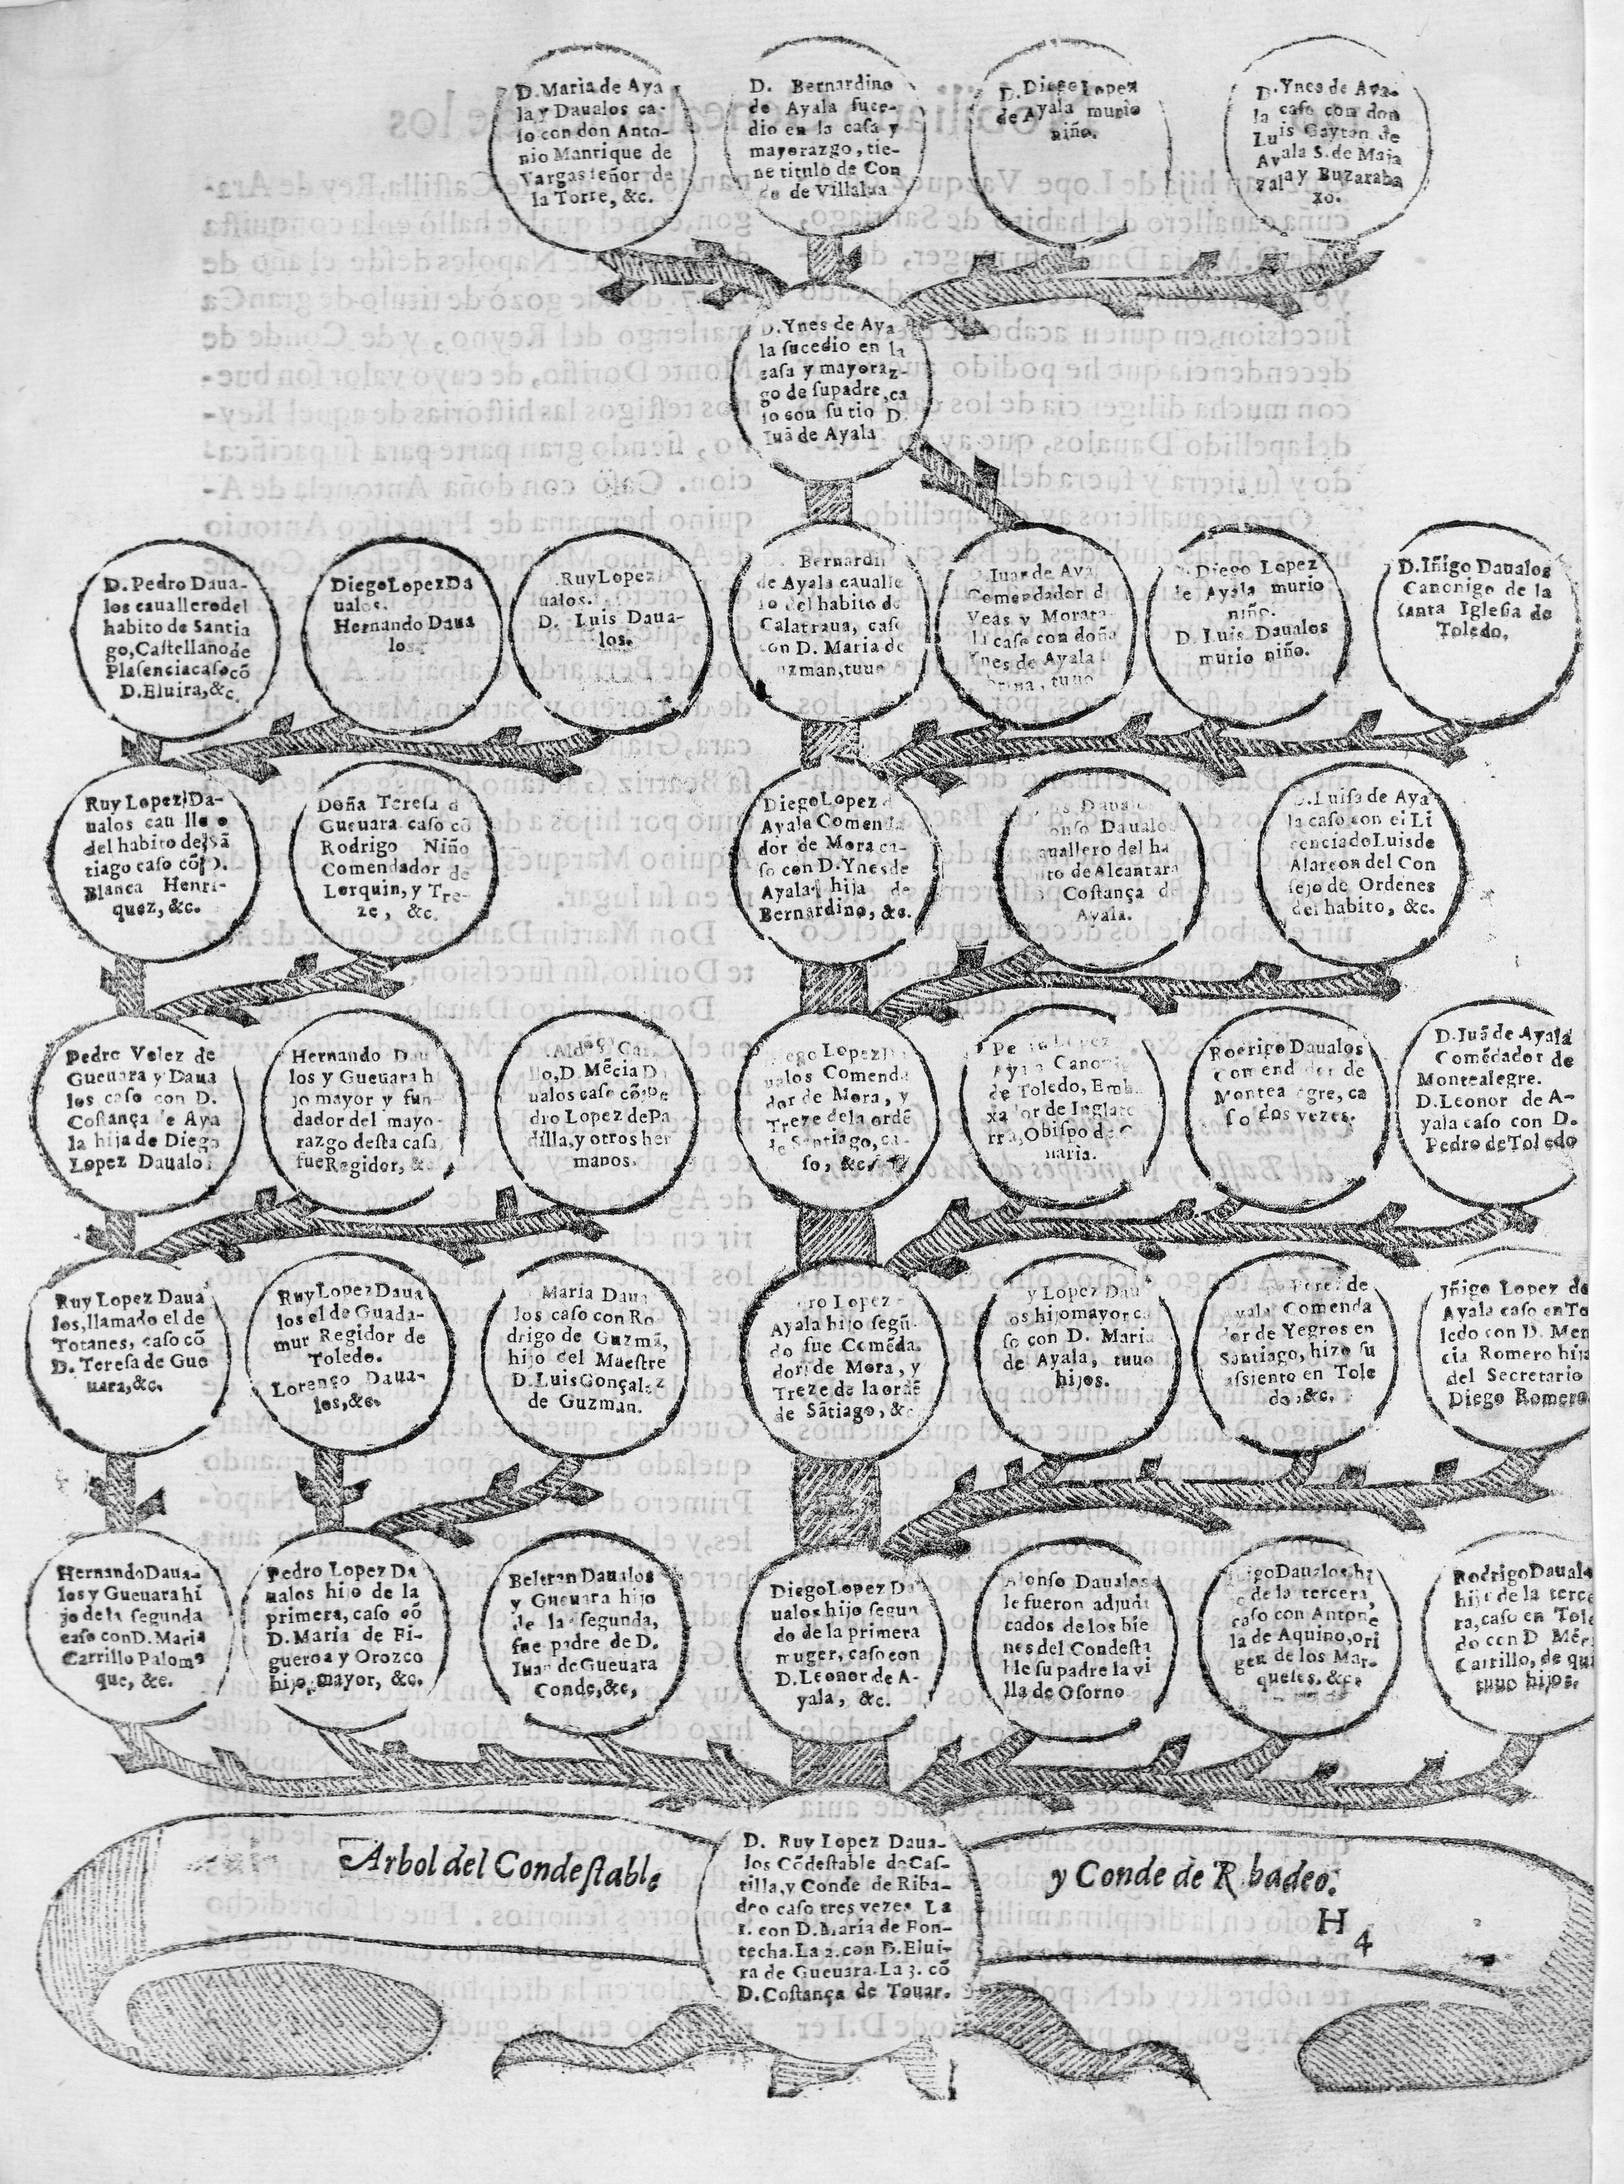 D. Maria de Aya
la y Daualos ca-
so con don Anto-
nio Manrique de
Vargas señor de
la Torre, &c.
D. Bernardino
de Ayala suce-
dio en la casa y
mayorazgo, tie-
ne titulo de Con
de de Villalua
D. Diego Lopez
de Ayala murio
niño.
D. Ynes de Aya-
la caso con don
Luis Gaytan de
Ayala S. de Maja
zala y Buzaraba
xo.
D. Ynes de Aya
la sucedio en la
casa y mayoraz-
go de su padre, ca
so con su tio D.
Iuã de Ayala
D. Pedro Daua-
los cauallero del
habito de Santia
go, Castellano de
Plasencia caso cõ
D. Eluira, &c.
Diego Lopez Da
ualos.
Hernando Daua
los.
Ruy Lopez
ualos.
D. Luis Daua-
los.
Bernardi
de Ayala caualle
ro del habito de
Calatraua, caso
con D. Maria de
uzman, tuuo
Iuan de Aya
Comendador d
Veas y Morata
la caso con doña
Ynes de Ayala
brina, tuuo
Diego Lopez
de Ayala murio
niño.
D. Luis Daualos
murio niño.
D. Iñigo Daualos
Canonigo de la
santa Iglesia de
Toledo.
Ruy Lopez Da-
ualos cau lle o
del habito de Sã
tiago caso cõ D.
Blanca Henri-
quez, &c.
Doña Teresa d
Gueuara caso cõ
Rodrigo Niño
Comendador de
Lorquin, y Tre-
ze, &c.
Diego Lopez d
Ayala Comenda
dor de Mora ca-
so con D. Ynes de
Ayala hija de
Bernardino, &c.
Daualo
onso Daualos
auallero del ha
ito de Alcantara
Costança d
Ayala.
D. Luisa de Aya
la caso con el Li
cenciado Luis de
Alarcon del Con
sejo de Ordenes
del habito, &c.
Pedro Velez de
Gueuara y Daua
los caso con D.
Costança de Aya
la hija de Diego
Lopez Daualo.
Hernando Dau
los y Gueuara h
jo mayor y fun-
dador del mayo-
razgo desta casa
fue Regidor, &
Car
llo, D. Mẽcia D
ualos caso cõ Pe
dro Lopez de Pa
dilla, y otros her
manos.
ego Lopez D
ualos Comenda
dor de Mora, y
Treze de la ordẽ
de Santiago, ca-
so, &c.
Pe Lopez
Ayala Canonig
de Toledo, Emba
xador de Inglate
rra, Obispo de C
naria.
Rodrigo Daualos
Comendador de
Montea egre, ca
so dos vezes.
D. Iuã de Ayala
Comẽdador de
Montealegre.
D. Leonor de A-
yala caso con D.
Pedro de Toledo
Ruy Lopez Daua
los, llamado el de
Totanes, caso cõ
D. Teresa de Gue
uara, &c.
Ruy Lopez Daua
los el de Guada-
mur Regidor de
Toledo.
Lorenço Daua-
los, &c.
Maria Daua
los caso con Ro
drigo de Guzmã,
hijo del Maestre
D. Luis Gonçalez
de Guzman.
ro Lopez
Ayala hijo segũ
do fue Comẽda.
dor de Mora, y
Treze de la ordẽ
de Sãtiago, &c
y Lopez Dau
os hijo mayor ca
so con D. Maria
de Ayala, tuuo
hijos.
Perez de
Ayala Comenda
dor de Yegros en
Santiago, hizo su
assiento en Tole
do, &c.
Iñigo Lopez de
Ayala caso en To
ledo con D. Men
cia Romero hija
del Secretario
Diego Romero
Hernando Daua-
los y Gueuara hi
jo de la segunda
caso con D. Maria
Carrillo Palome
que, &c.
Pedro Lopez Da
ualos hijo de la
primera, caso cõ
D. Maria de Fi-
gueroa y Orozco
hijo mayor, &c.
Beltran Daualos
y Gueuara hijo
de la segunda,
fue padre de D.
Iuan de Gueuara
Conde, &c,
Diego Lopez Da
ualos hijo segun
do de la primera
muger, caso con
D. Leonor de A-
yala, &c.
Alonso Daualos
le fueron adjudi
cados de los bie
nes del Condesta
ble su padre la vi
lla de Osorno
igo Daualos hi
jo de la tercera,
caso con Antone
la de Aquino, ori
gen de los Mar-
queses, &c.
Rodrigo Daualo
hijo de la terce
ra, caso en Tole
do con D Mẽc
Carrillo, de qui
tuuo hijos.
Arbol del Condestable
D. Ruy Lopez Daua-
los Cõdestable de Cas-
tilla, y Conde de Riba-
deo caso tres vezes. La
1. con D. Maria de Fon-
techa. La 2. con D. Elui-
ra de Gueuara. La 3. cõ
D. Costança de Touar.
y Conde de R badeo.
H 4